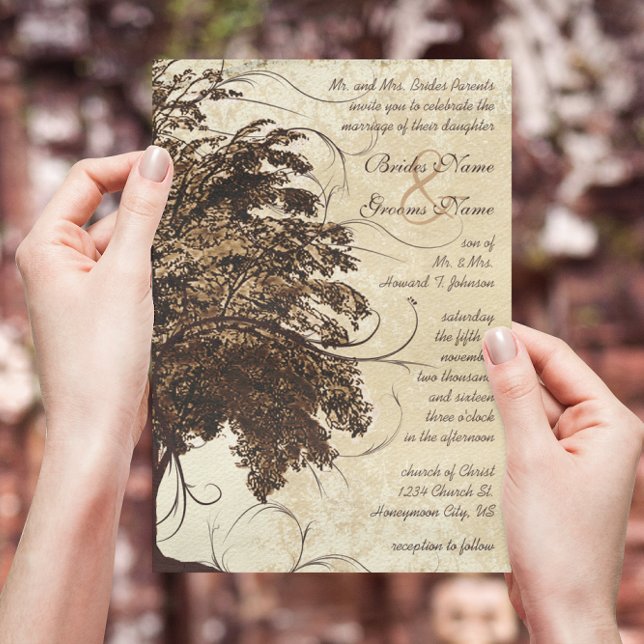 Mr. and Mrs. Brides Parents
invite you to celebrate the
marriage of their daughter
Brides Name
&
Grooms Name
son of
Mr. & Mrs.
Howard T. Johnson
saturday
the fifth
november
two thousand
and sixteen
three o'clock
in the afternoon
church of Christ
1234 Church St.
Honeymoon City, US
reception to follow